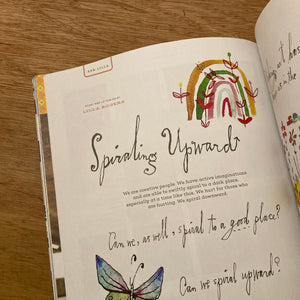 ASK LILLA
LILLA ROGERS
Spiraling Upward
We are creative people. We have active imaginations
and are able to swiftly spiral to a dark place,
especially at a time like this. We hurt for those who
are hurting. We spiral downward.
Can we, as well, spiral to a good place?
Can we spiral upward?